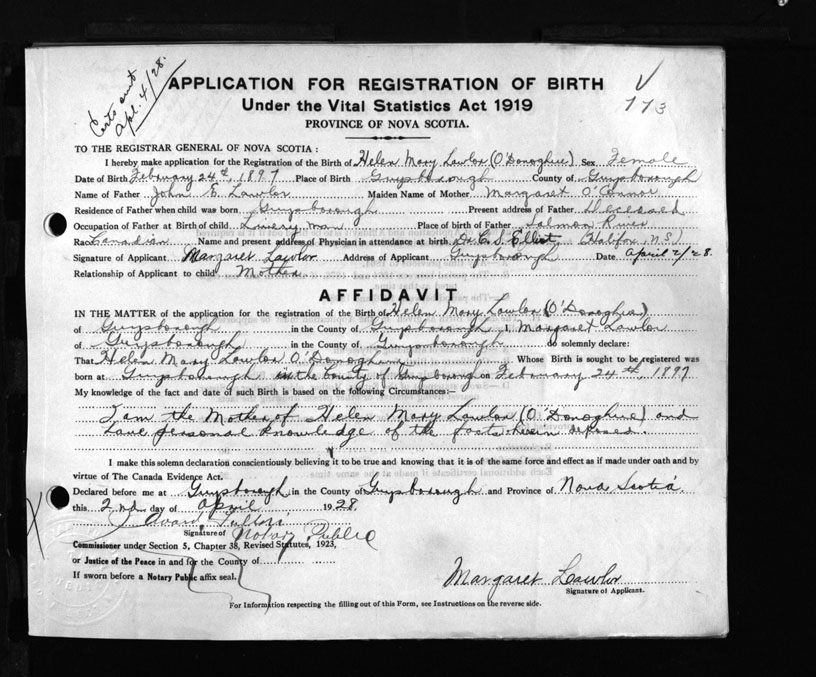 Certs sent
Apl. 4/28.
APPLICATION FOR REGISTRATION OF BIRTH
Under the Vital Statistics Act 1919
PROVINCE OF NOVA SCOTIA.
V
773
TO THE REGISTRAR GENERAL OF NOVA SCOTIA :
I hereby make application for the Registration of the Birth of Helen Mary Lawlor (O'Donoghue) Sex Female
Date of Birth February 24th, 1897 Place of Birth Guysborough County of Guysborough
Name of Father John E. Lawlor Maiden Name of Mother Margaret O'Connor
Residence of Father when child was born Guysborough Present address of Father Deceased
Occupation of Father at Birth of child Livery man Place of birth of Father Salmon River
Race Canadian Name and present address of Physician in attendance at birth Dr. C. S. Elliot (Halifax, N.S.)
Signature of Applicant Margaret Lawlor Address of Applicant Guysborough Date April 2/28.
Relationship of Applicant to child Mother
AFFIDAVIT
IN THE MATTER of the application for the registration of the Birth of Helen Mary Lawlor (O'Donoghue)
of Guysborough in the County of Guysborough I, Margaret Lawlor
of Guysborough in the County of Guysborough do solemnly declare:
That Helen Mary Lawlor O'Donoghue Whose Birth is sought to be registered was
born at Guysborough in the County of Guysborough on February 24th, 1897
My knowledge of the fact and date of such Birth is based on the following Circumstances:—
I am the Mother of Helen Mary Lawlor (O'Donoghue) and
have personal knowledge of the facts herein deposed.
I make this solemn declaration conscientiously believing it to be true and knowing that it is of the same force and effect as if made under oath and by
virtue of The Canada Evidence Act.
Declared before me at Guysborough in the County of Guysborough and Province of Nova Scotia
this 2nd day of April 1928.
Fulton
Signature of Notary Public
Commissioner under Section 5, Chapter 38, Revised Statutes, 1923,
or Justice of the Peace in and for the County of
If sworn before a Notary Public affix seal.
Margaret Lawlor
Signature of Applicant.
For Information respecting the filling out of this Form, see Instructions on the reverse side.